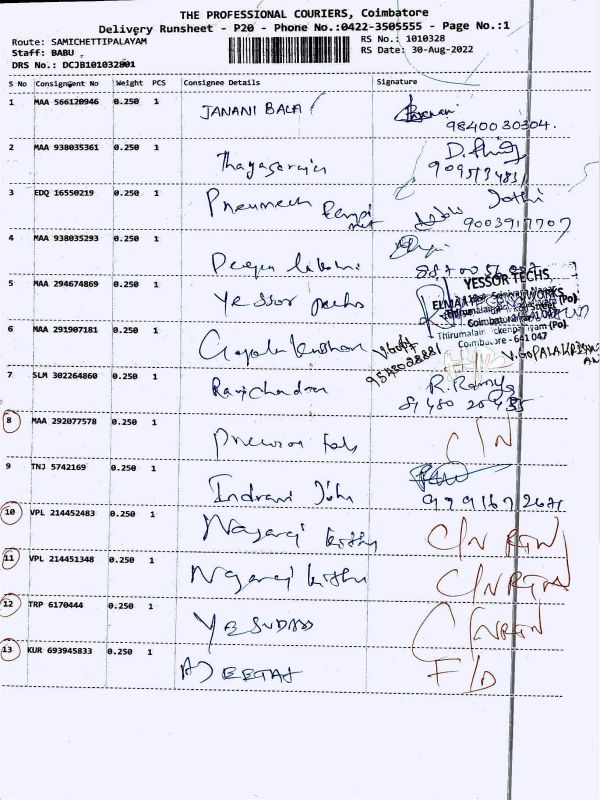 THE PROFESSIONAL COURIERS, Coimbatore
Delivery Runsheet - P20 - Phone No.:0422-3505555 - Page No.:1
Route: SAMICHETTIPALAYAM
RS No.: 1010328
Staff: BABU
RS Date: 30-Aug-2022
DRS No.: DCJB101032801
S No Consignment No Weight PCS Consignee Details Signature
1 MAA 566120946 0.250 1 JANANI BALA
9840030304.
2 MAA 938035361 0.250 1 Thayagarajan
3 EDQ 16550219 0.250 1 Pneumech
Jothi
9003917707
4 MAA 938035293 0.250 1 Deepa lakshmi
5 MAA 294674869 0.250 1 Yessor techs
YESSOR TECHS,
Coimbatore - 641 047
6 MAA 291907181 0.250 1 Gopala krishnan
V. GOPALAKRISHNAN
7 SLM 302264860 0.250 1 Ravichandran R. Ramya
8 MAA 292077578 0.250 1 C/N
9 TNJ 5742169 0.250 1 Indrani John
10 VPL 214452483 0.250 1 Nagaraj C/N RTN
11 VPL 214451348 0.250 1 Nagaraj C/N RTN
12 TRP 6170444 0.250 1 YESUDASS C/N RTN
13 KUR 693945833 0.250 1 AJEETAJ F/D